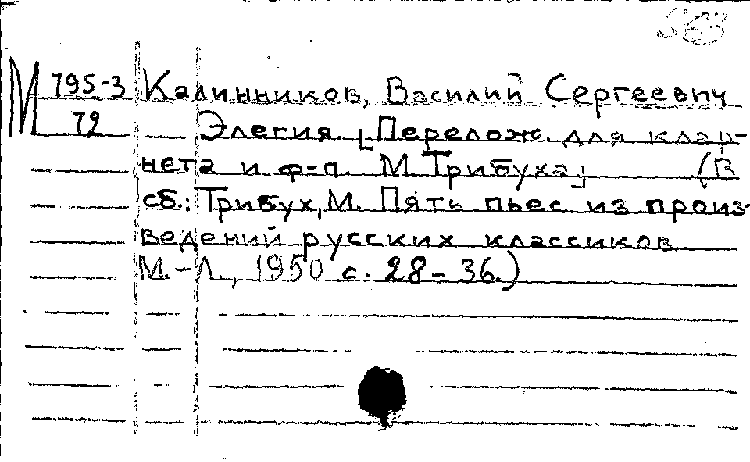 М 795-3 Калинников, Василий Сергеевич
79 Элегия [Перелож. для клар-
нета и ф-п. М. Трибуха] (В
сб.: Трибух, М. Пять пьес из произ-
ведений русских классиков
М.-Л., 1950 с. 28-36.)